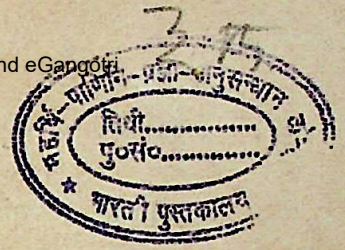 nd eGangotri
महर्षि-पाणिनि-प्रज्ञा-अनुसन्धान
तिथी..............
पु०सं०..............
★ भारती पुस्तकालय